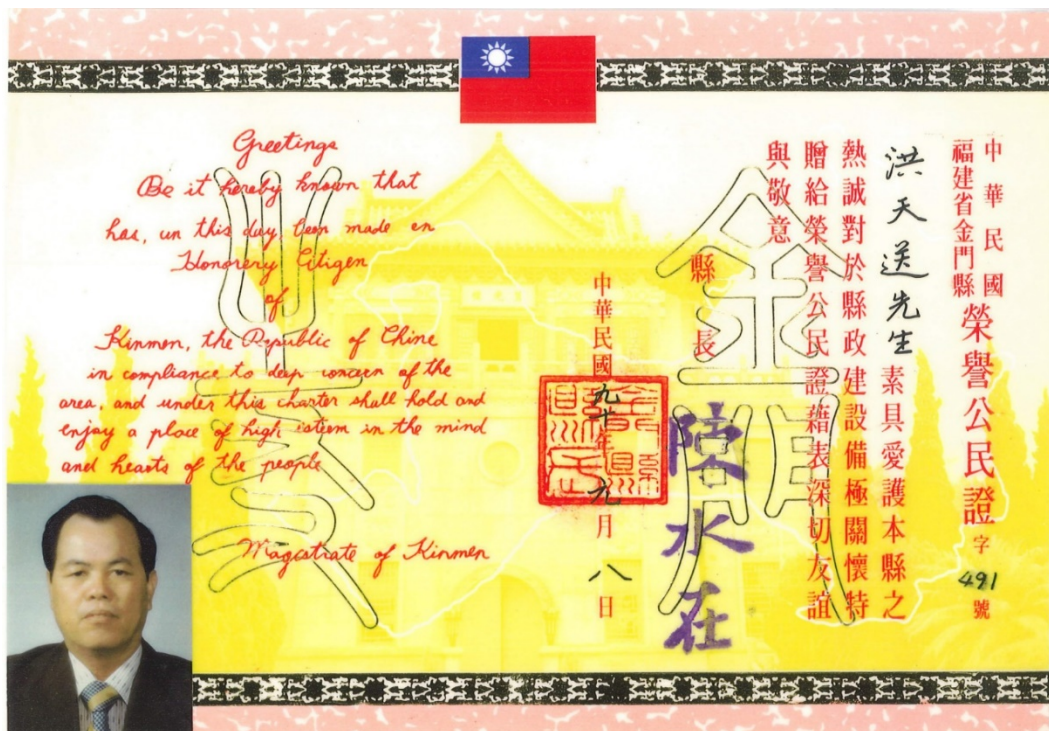 中華民國
福建省金門縣
榮譽公民證字491號
洪天送先生素具愛護本縣之
熱誠對於縣政建設備極關懷特
贈給榮譽公民證藉表深切友誼
與敬意
縣長 陳水在
中華民國九十年九月八日
金門
之友
Greetings
Be it hereby known that
has, un this day been made en
Honorery Citigen
of
Kinmen, the Republic of Chine
in compliance to deep concern of the
area, and under this charter shall hold and
enjoy a place of high isteem in the mind
and hearts of the people
Magistrate of Kinmen